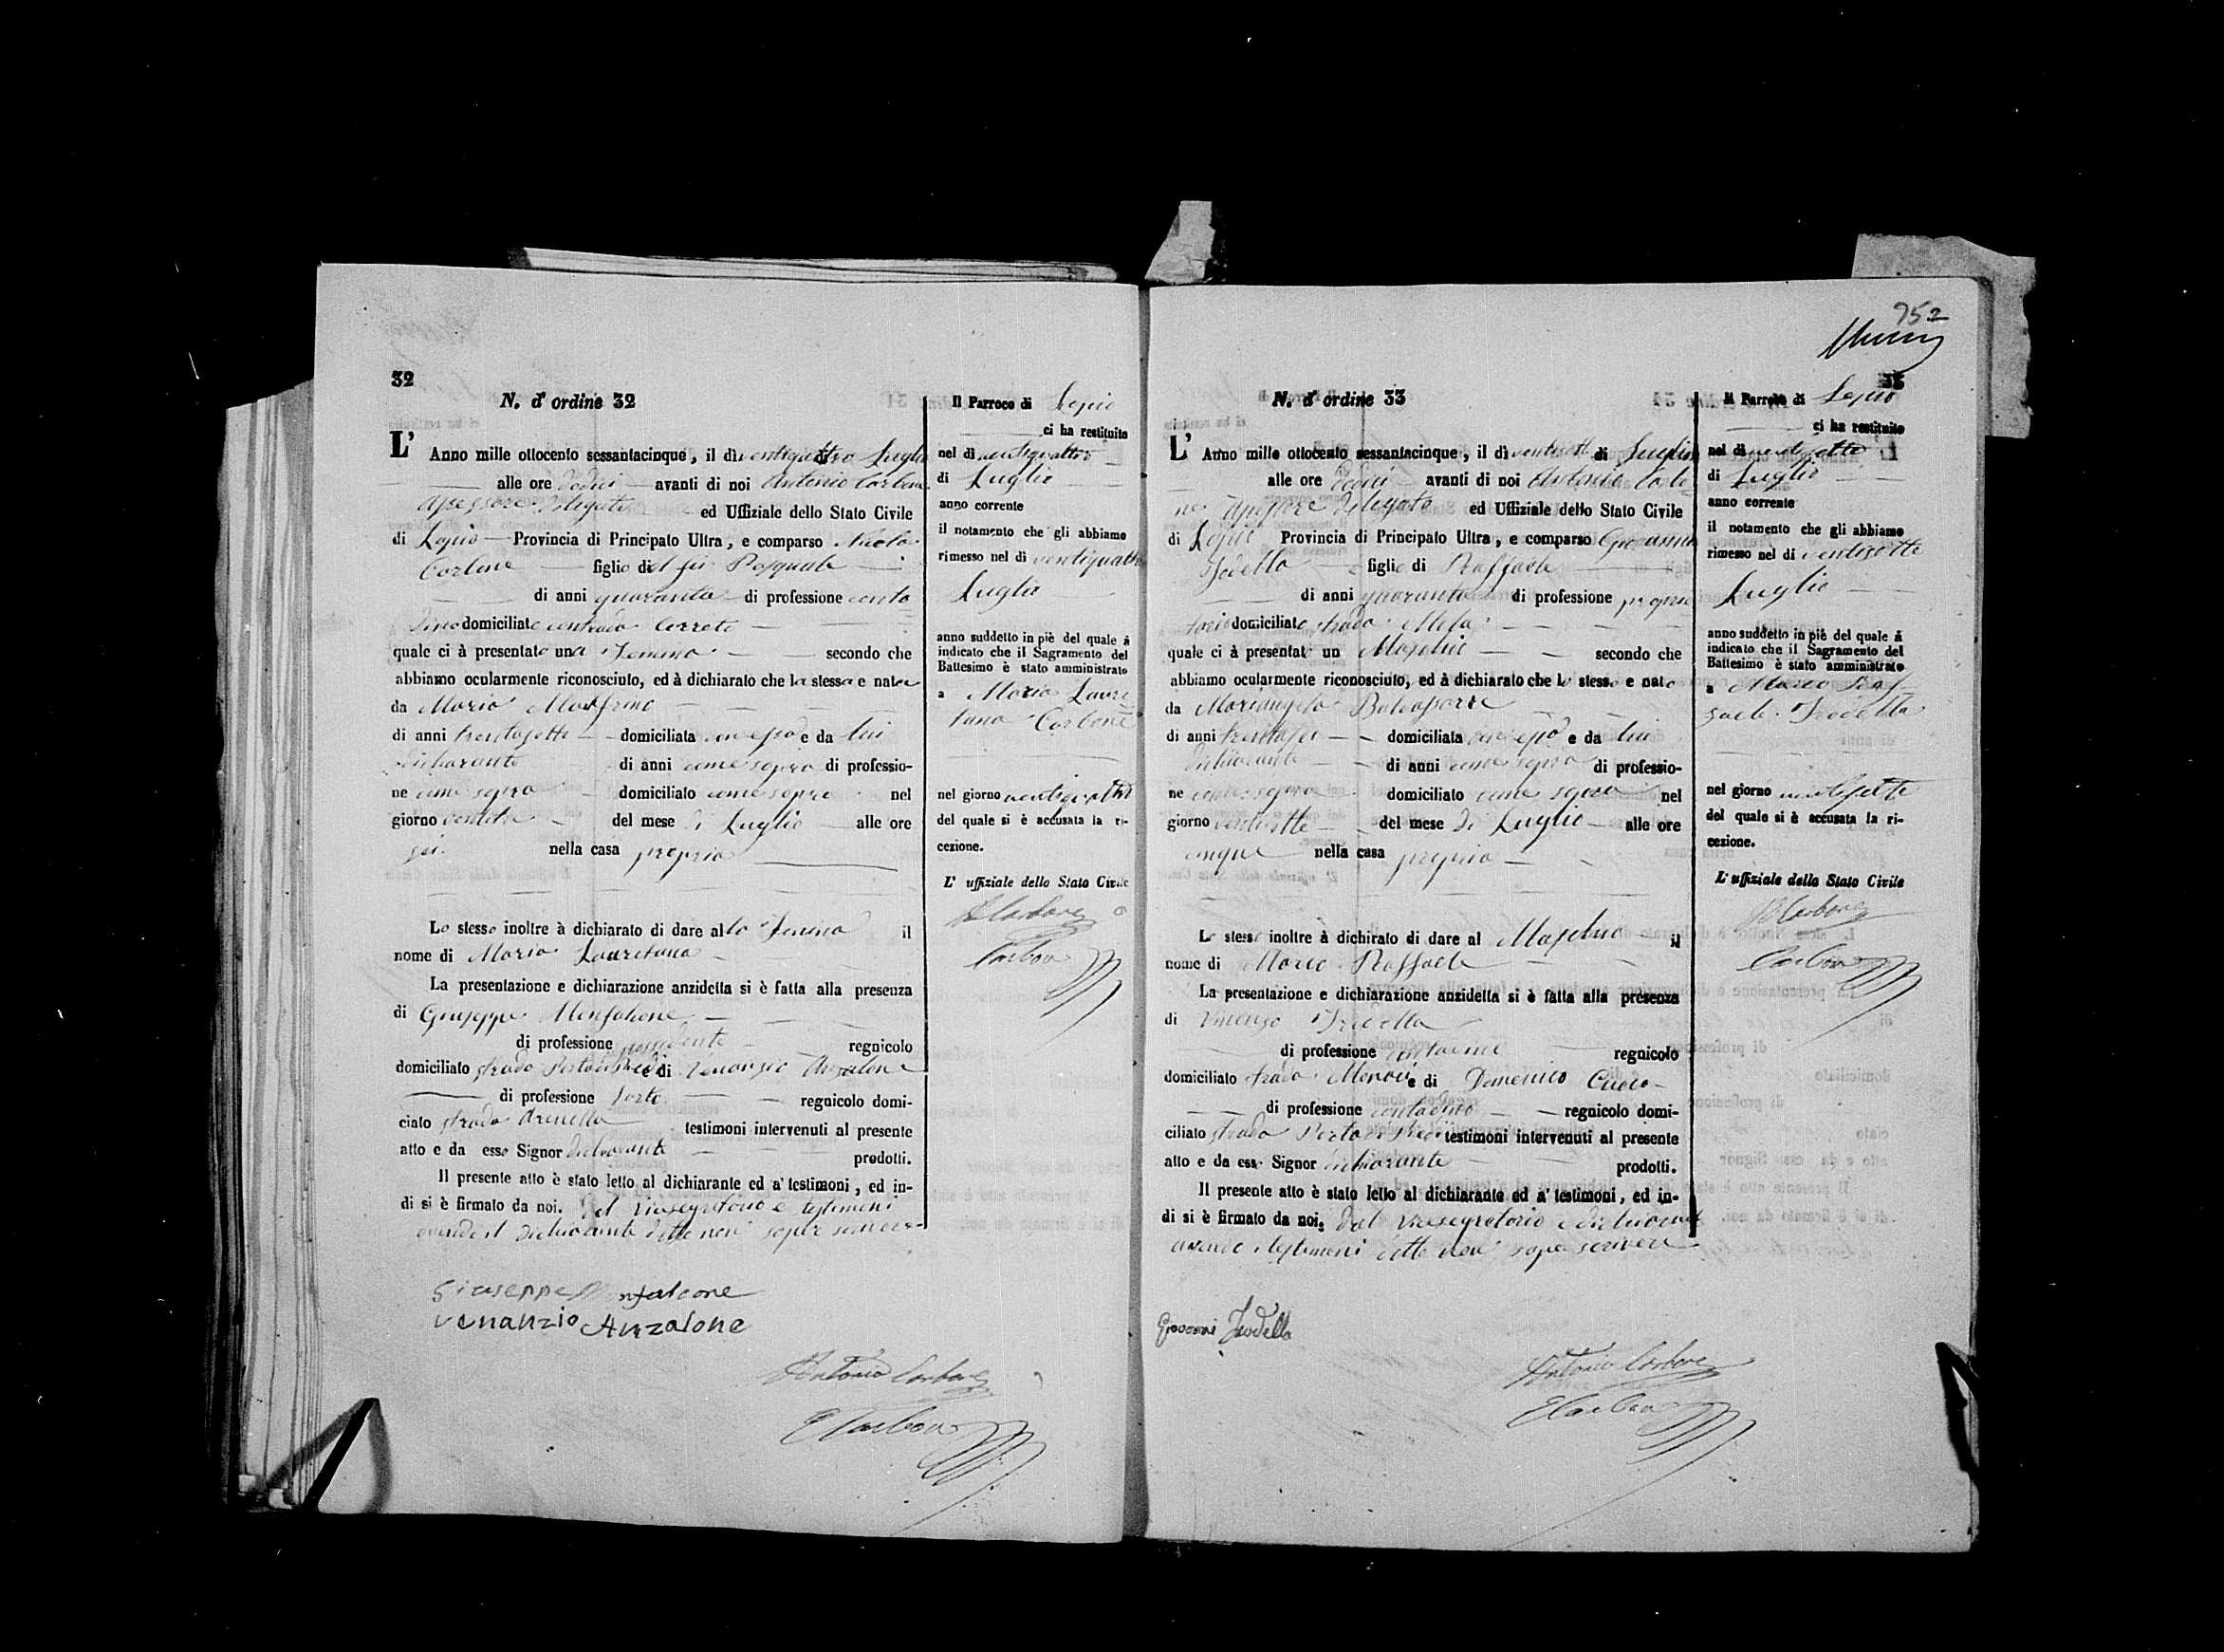 32
N. d' ordine 32
L' Anno mille ottocento sessantacinque, il dì ventiquattro Luglio
alle ore dodici avanti di noi Antonio Carbone
Assessore Delegato ed Uffiziale dello Stato Civile
di Lapio Provincia di Principato Ultra, e comparso Nicola
Carbone figlio del fu Pasquale
di anni quaranta di professione conta
dino domiciliato contrada Cerreto
quale ci à presentato una Femina secondo che
abbiamo ocularmente riconosciuto, ed à dichiarato che la stessa e nata
da Maria
di anni trentasette domiciliata con esso e da lui
dicharante di anni come sopra di professio-
ne come sopra domiciliato come sopra nel
giorno ventitre del mese di Luglio alle ore
sei nella casa propria
Lo stesso inoltre à dichiarato di dare alla Femina il
nome di Maria Lauretana
La presentazione e dichiarazione anzidetta si è fatta alla presenza
di Giuseppe Monfalcone
di professione possidente regnicolo
domiciliato strada e di Venanzio Anzalone
di professione Sarto regnicolo domi-
ciato strada Arenella testimoni intervenuti al presente
atto e da esso Signor dichiarante prodotti.
Il presente atto è stato letto al dichiarante ed a' testimoni, ed in-
di si è firmato da noi. Dal Vicesegretario e testimoni
avendo il dichiarante detto non saper scrivere
Giuseppe Monfalcone
Venanzio Anzalone
Antonio Carbone
E Carbone
Il Parroco di Lapio
ci ha restituito
nel dì ventiquattro
di Luglio
anno corrente
il notamento che gli abbiamo
rimesso nel dì ventiquattro
Luglio
anno suddetto in piè del quale á
indicato che il Sagramento del
Battesimo è stato amministrato
a Maria Laure
tana Carbone
nel giorno ventiquattro
del quale si è accusata la ri-
cezione.
L' uffiziale dello Stato Civile
A Carbone
Carbone
952
33
N. d' ordine 33
L' Anno mille ottocento sessantacinque, il dì ventisette di Luglio
alle ore dodici avanti di noi Antonio Carbo
ne Assessore Delegato ed Uffiziale dello Stato Civile
di Lapio Provincia di Principato Ultra, e comparso Giovanni
Trodella figlio di Raffaele
di anni quaranta di professione proprie
tario domiciliato strada
quale ci à presentato un Maschio secondo che
abbiamo ocularmente riconosciuto, ed à dichiarato che lo stesso e nato
da Mariangela
di anni trentasei domiciliata con esso e da lui
dichiarante di anni come sopra di professio-
ne come sopra domiciliato come sopra nel
giorno ventisette del mese di Luglio alle ore
cinque nella casa propria
Lo stesso inoltre à dichirato di dare al Maschio il
nome di Marco Raffaele
La presentazione e dichiarazione anzidetta si è fatta alla presenza
di Vincenzo Trodella
di professione contadino regnicolo
domiciliato strada e di Domenico Cuoco
di professione contadino regnicolo domi-
ciliato strada testimoni intervenuti al presente
atto e da esso Signor dichiarante prodotti.
Il presente atto è stato letto al dichiarante ed a' testimoni, ed in-
di si è firmato da noi. Dal Vicesegretario e dichiarante
avendo i testimoni detto non saper scrivere
Giovanni Trodella
Antonio Carbone
E Carbone
Il Parroco di Lapio
ci ha restituito
nel dì ventisette
di Luglio
anno corrente
il notamento che gli abbiamo
rimesso nel dì ventisette
Luglio
anno suddetto in piè del quale á
indicato che il Sagramento del
Battesimo è stato amministrato
a Marco Raf-
faele Trodella
nel giorno ventisette
del quale si è accusata la ri-
cezione.
L' uffiziale dello Stato Civile
A Carbone
Carbone